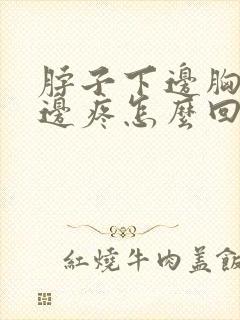 脖子下邊胸
邊疼怎麼回
紅燒牛肉盖飯